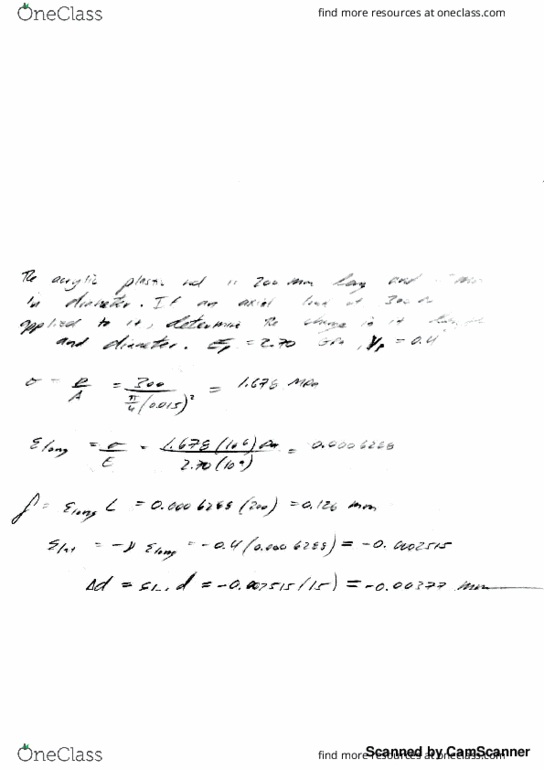 OneClass
find more resources at oneclass.com
The acrylic plastic rod is 200 mm long and
in diameter. If an axial load of 300
applied to it, determine the change in it
and diameter. Ep = 2.70 GPa, νp = 0.4
σ = P/A = 300 / (π/4 (0.015)²) = 1.678 MPa
εlong = σ/E = 1.678(10⁶) Pa / 2.70(10⁹) = 0.0006288
δ = εlong L = 0.0006288 (200) = 0.126 mm
εlat = -ν εlong = -0.4(0.0006288) = -0.0002515
Δd = d = (15) = -0.00377 mm
OneClass
find more resources at oneclass.com
Scanned by CamScanner